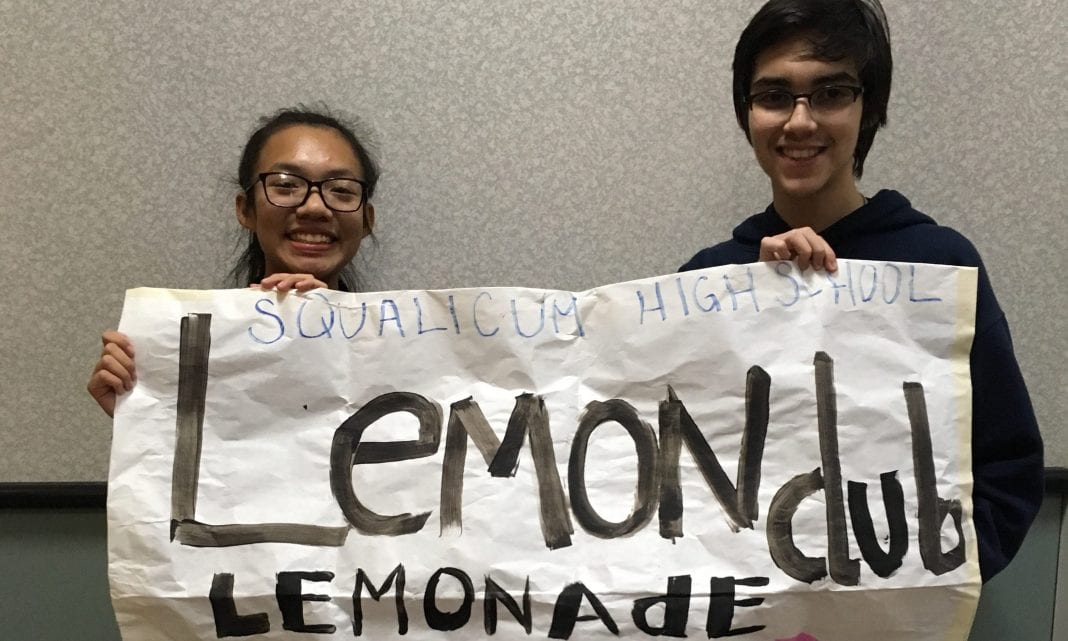 SQUALICUM HIGH SCHOOL
LeMON club
LEMONAdE